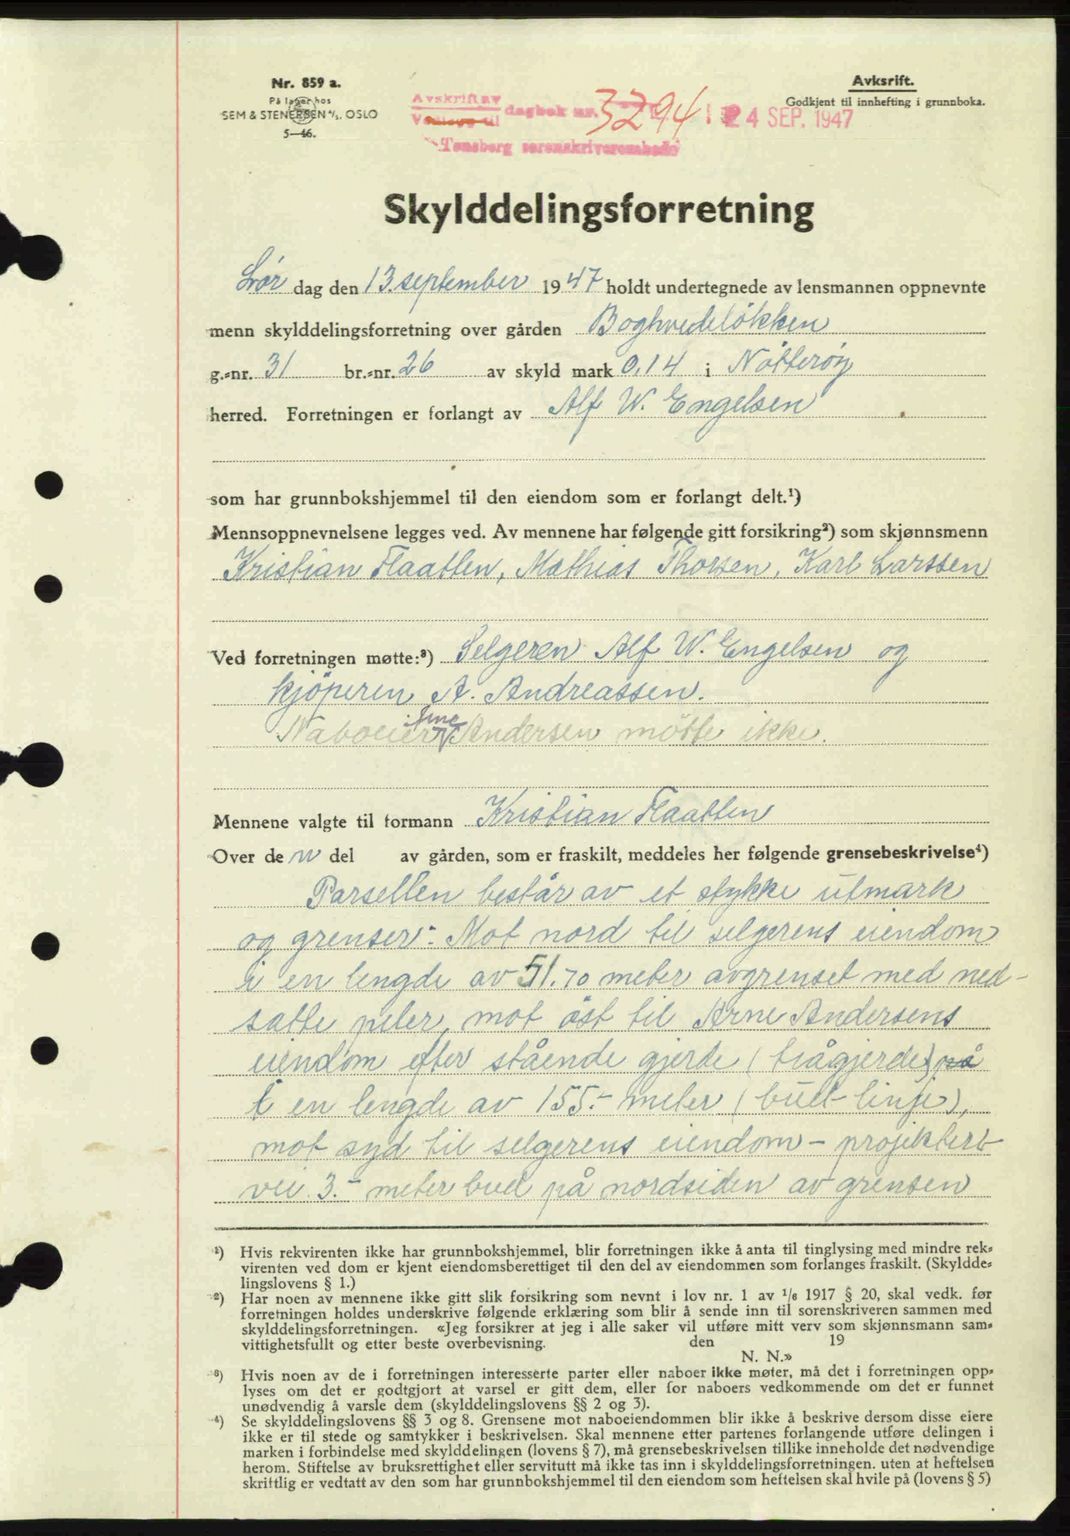 Nr. 859 a.
På lager hos
SEM & STENERSEN A/S, OSLO
5—46.
Avskrift av
dagbok nr. 3294 i 24 SEP. 1947
Tønsberg sorenskriverembede
Avksrift.
Godkjent til innhefting i grunnboka.
Skylddelingsforretning
Lør dag den 13. september 1947 holdt undertegnede av lensmannen oppnevnte
menn skylddelingsforretning over gården Boghvedeløkken
g.-nr. 31 br.-nr. 26 av skyld mark 0,14 i Nøtterøy
herred. Forretningen er forlangt av Alf W. Engelsen
som har grunnbokshjemmel til den eiendom som er forlangt delt.¹)
Mennsoppnevnelsene legges ved. Av mennene har følgende gitt forsikring²) som skjønnsmenn
Kristian Flaatten, Mathias Thorsen, Karl Larssen
Ved forretningen møtte:³) Selgeren Alf W. Engelsen og
kjøperen A. Andreassen.
Naboeier Arne Andersen møtte ikke.
Mennene valgte til formann Kristian Flaatten
Over de n del av gården, som er fraskilt, meddeles her følgende grensebeskrivelse⁴)
Parsellen består av et stykke utmark
og grenser: Mot nord til selgerens eiendom
i en lengde av 51.70 meter avgrenset med ned-
satte peler, mot øst til Arne Andersens
eiendom efter stående gjerde (trågjerde) på
i en lengde av 155.- meter (buet linje),
mot syd til selgerens eiendom - projektert
vei 3.- meter bred på nordsiden av grensen
¹) Hvis rekvirenten ikke har grunnbokshjemmel, blir forretningen ikke å anta til tinglysing med mindre rek-
virenten ved dom er kjent eiendomsberettiget til den del av eiendommen som forlanges fraskilt. (Skyldde-
lingslovens § 1.)
²) Har noen av mennene ikke gitt slik forsikring som nevnt i lov nr. 1 av 1/6 1917 § 20, skal vedk. før
forretningen holdes underskrive følgende erklæring som blir å sende inn til sorenskriveren sammen med
skylddelingsforretningen. «Jeg forsikrer at jeg i alle saker vil utføre mitt verv som skjønnsmann sam-
vittighetsfullt og etter beste overbevisning. den 19
N. N.»
³) Hvis noen av de i forretningen interesserte parter eller naboer ikke møter, må det i forretningen opp-
lyses om det er godtgjort at varsel er gitt dem, eller for naboers vedkommende om det er funnet
unødvendig å varsle dem (skylddelingslovens §§ 2 og 3).
⁴) Se skylddelingslovens §§ 3 og 8. Grensene mot naboeiendommen blir ikke å beskrive dersom disse eiere
ikke er til stede og samtykker i beskrivelsen. Skal mennene etter partenes forlangende utføre delingen i
marken i forbindelse med skylddelingen (lovens § 7), må grensebeskrivelsen tillike inneholde det nødvendige
herom. Stiftelse av bruksrettighet eller servitutt må ikke tas inn i skylddelingsforretningen. uten at heftelsen
skriftlig er vedtatt av den som har grunnbokshjemmel til den eiendom som heftelsen skal hvile på (lovens § 5)